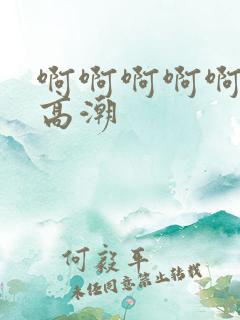 啊啊啊啊啊
高潮
何毅平
未经同意禁止转载